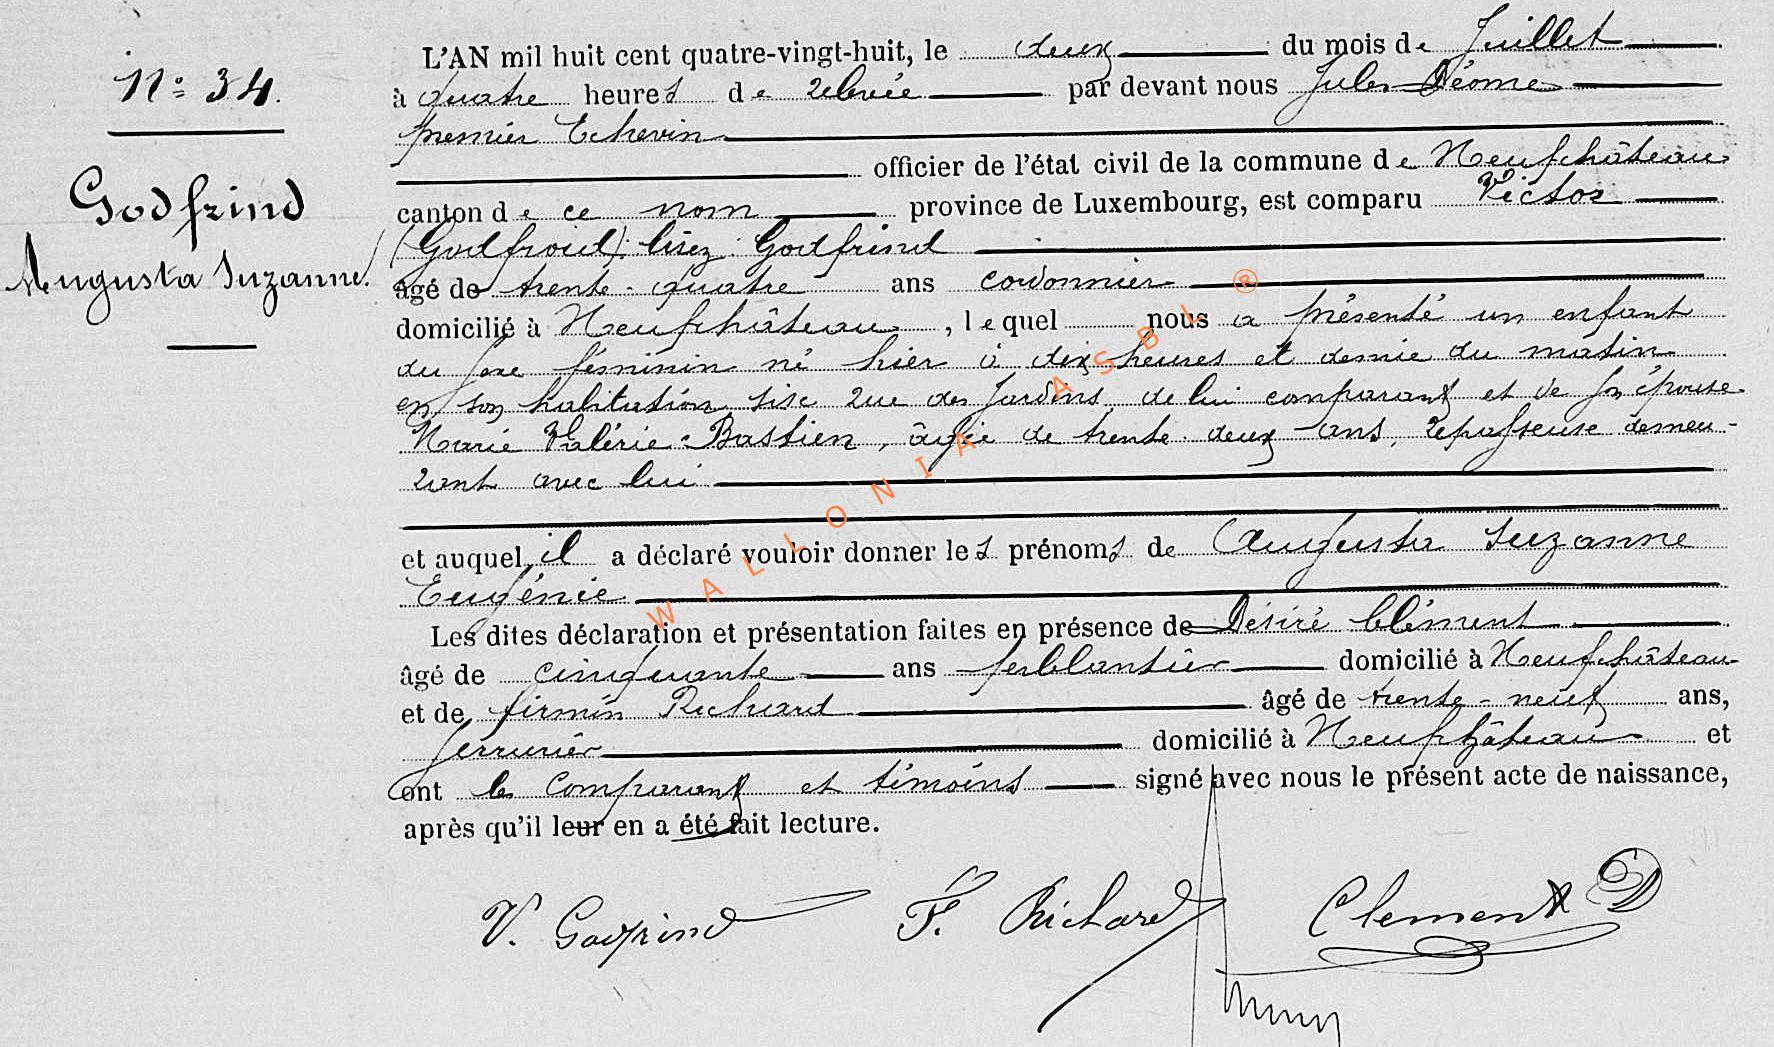 N° 34.
Godfrind
Augusta Suzanne.
L'AN mil huit cent quatre-vingt-huit, le deux du mois de Juillet
à quatre heures de relevée par devant nous Jules Déome
premier Echevin
officier de l'état civil de la commune de Neufchâteau
canton de ce nom province de Luxembourg, est comparu Victor
(Godfroid) lisez : Godfrind
âgé de trente-quatre ans cordonnier
domicilié à Neufchâteau, lequel nous a présenté un enfant
du sexe féminin né hier à dix heures et demie du matin
en son habitation sise rue des Jardins, de lui comparant et de son épouse
Marie Valérie Bastien, âgée de trente-deux ans, repasseuse demeu-
rant avec lui
et auquel il a déclaré vouloir donner les prénoms de Augusta Suzanne
Eugénie
Les dites déclaration et présentation faites en présence de Désiré Clément
âgé de cinquante ans ferblantier domicilié à Neufchâteau
et de firmin Richard âgé de trente-neuf ans,
serrurier domicilié à Neufchâteau et
ont les Comparant et témoins signé avec nous le présent acte de naissance,
après qu'il leur en a été fait lecture.
V. Godfrind F. Richard Clement D
WALLONIA ASBL ®